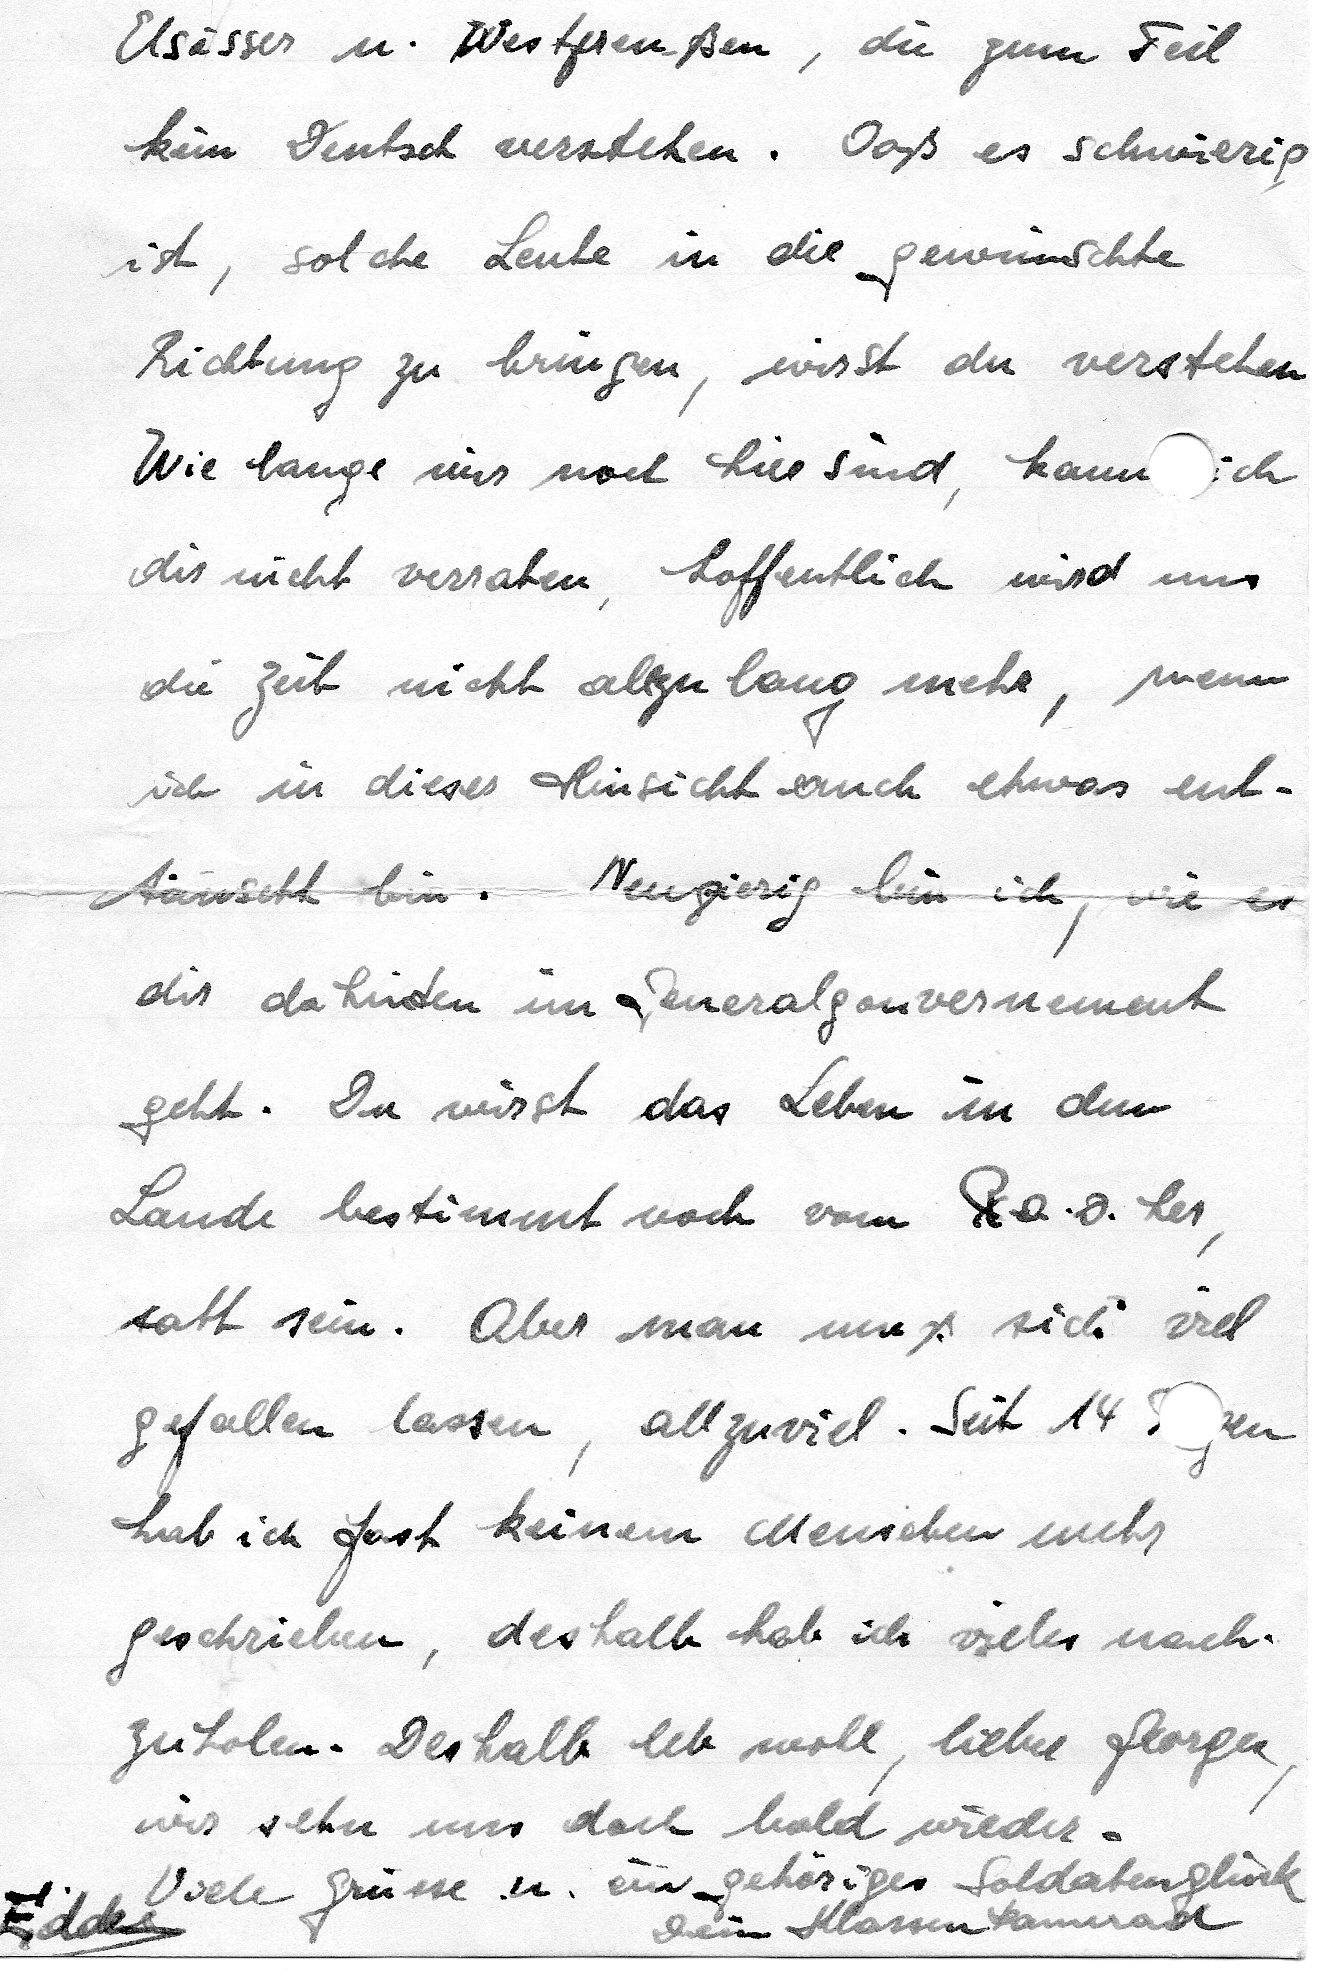 Elsässer u. Westpreußen, die zum Teil
kein Deutsch verstehen. Daß es schwierig
ist, solche Leute in die gewünschte
Richtung zu bringen, wirst du verstehen
Wie lange wir noch hier sind, kann ich
dir nicht verraten, hoffentlich wird uns
die Zeit nicht allzu lang mehr, wenn
ich in dieser Hinsicht auch etwas ent-
täuscht bin. Neugierig bin ich, wie es
dir dahinten im Generalgouvernement
geht. Du wirst das Leben in dem
Lande bestimmt noch vom R.a.d. her,
satt sein. Aber man muß sich viel
gefallen lassen, allzuviel. Seit 14 Tagen
hab ich fast keinem Menschen mehr
geschrieben, deshalb hab ich vieles nach-
zuholen. Deshalb leb wohl, lieber
wir sehn uns doch bald wieder.
Viele Grüsse u. ein gehöriges Soldatenglück
Dein Klassenkamerad